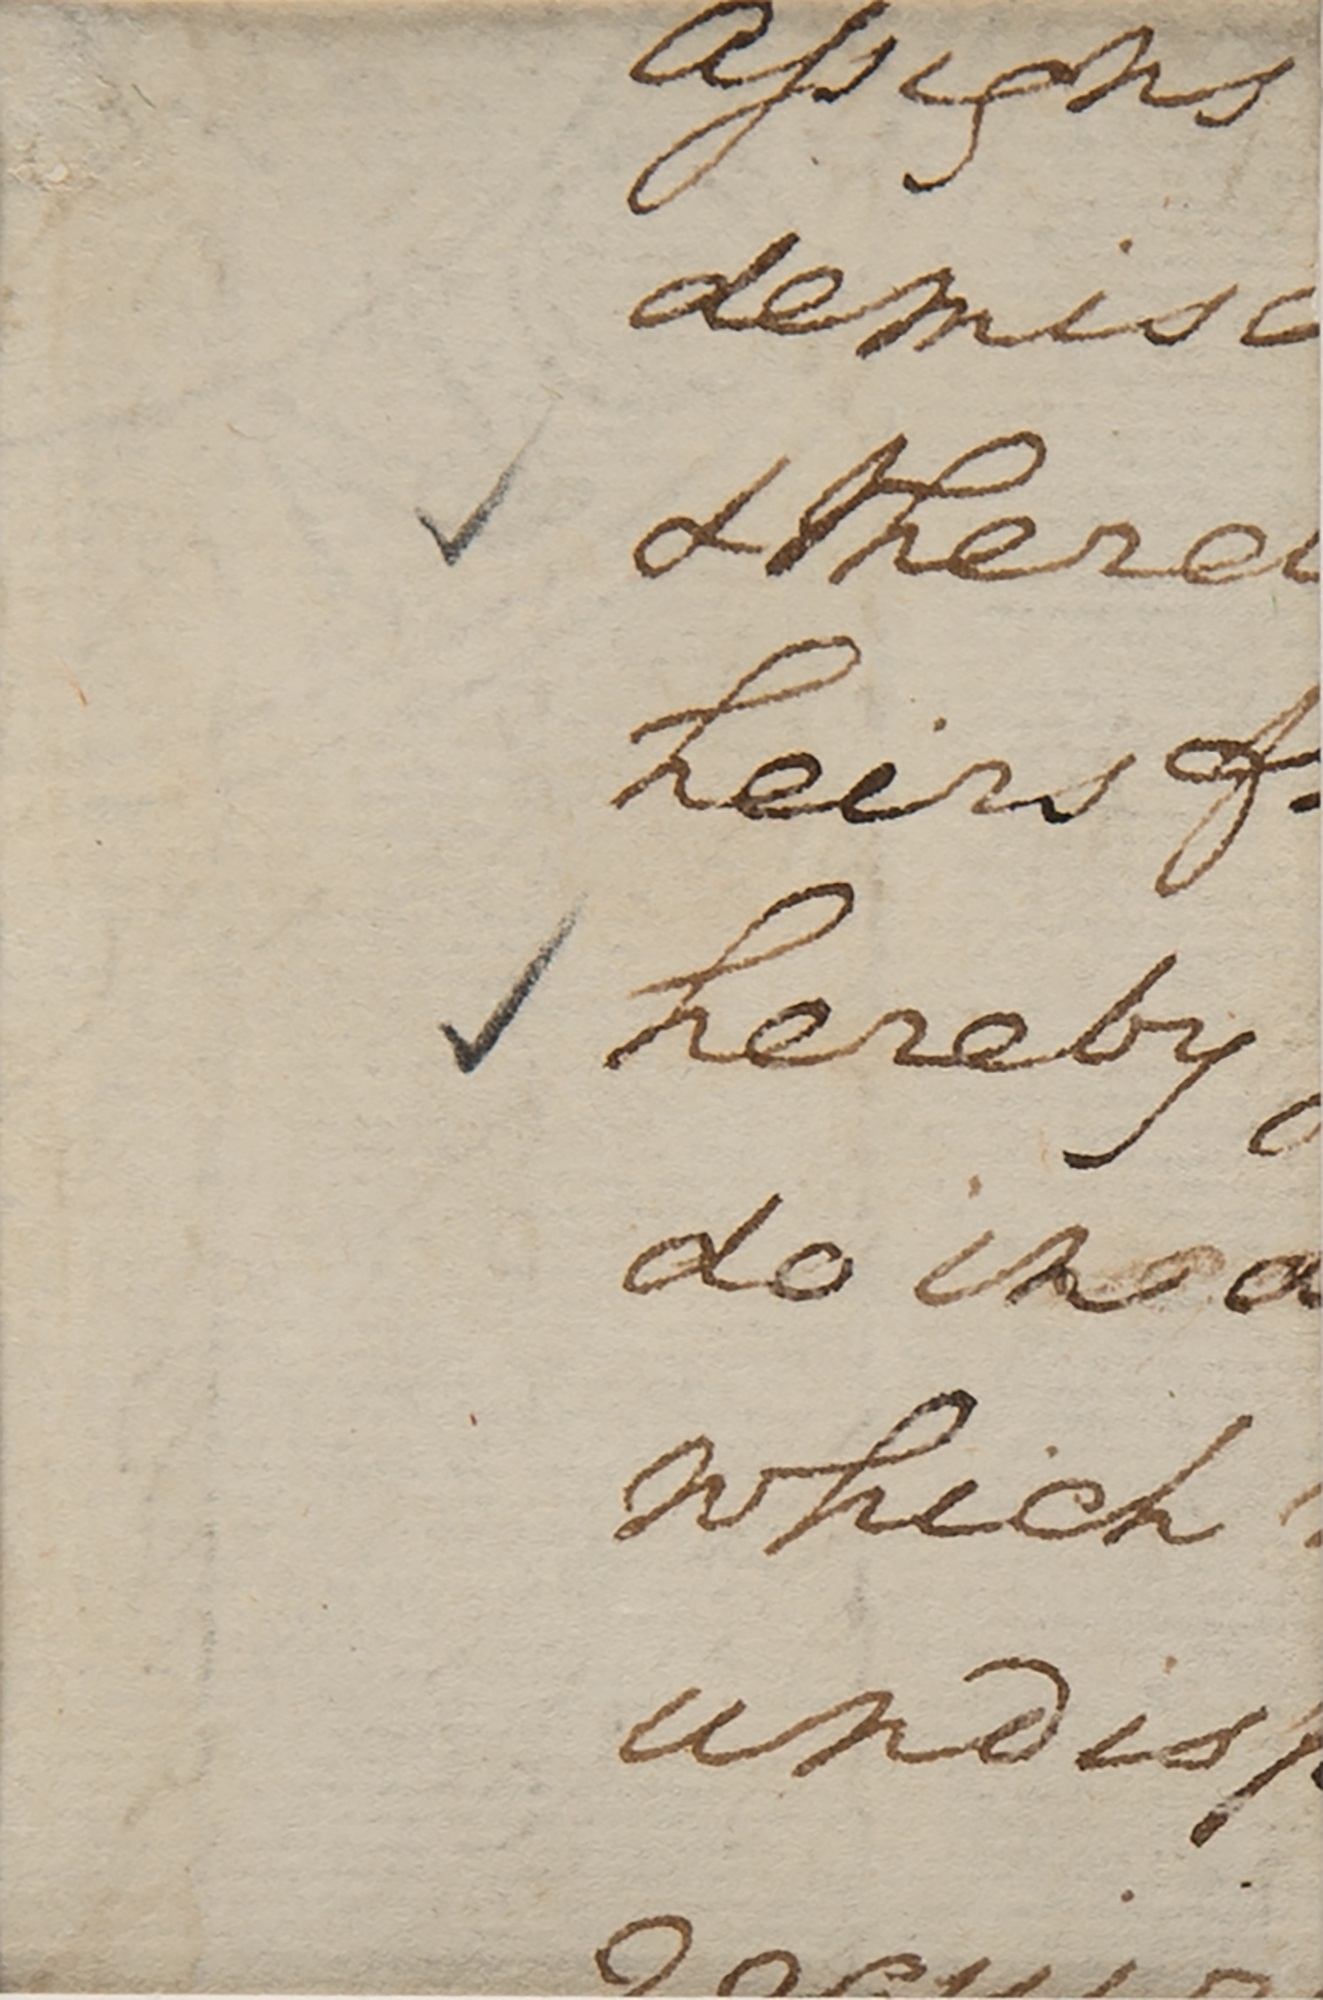 assigns
demise
✓ & there
heirs
✓ hereby
do in
which
undisp